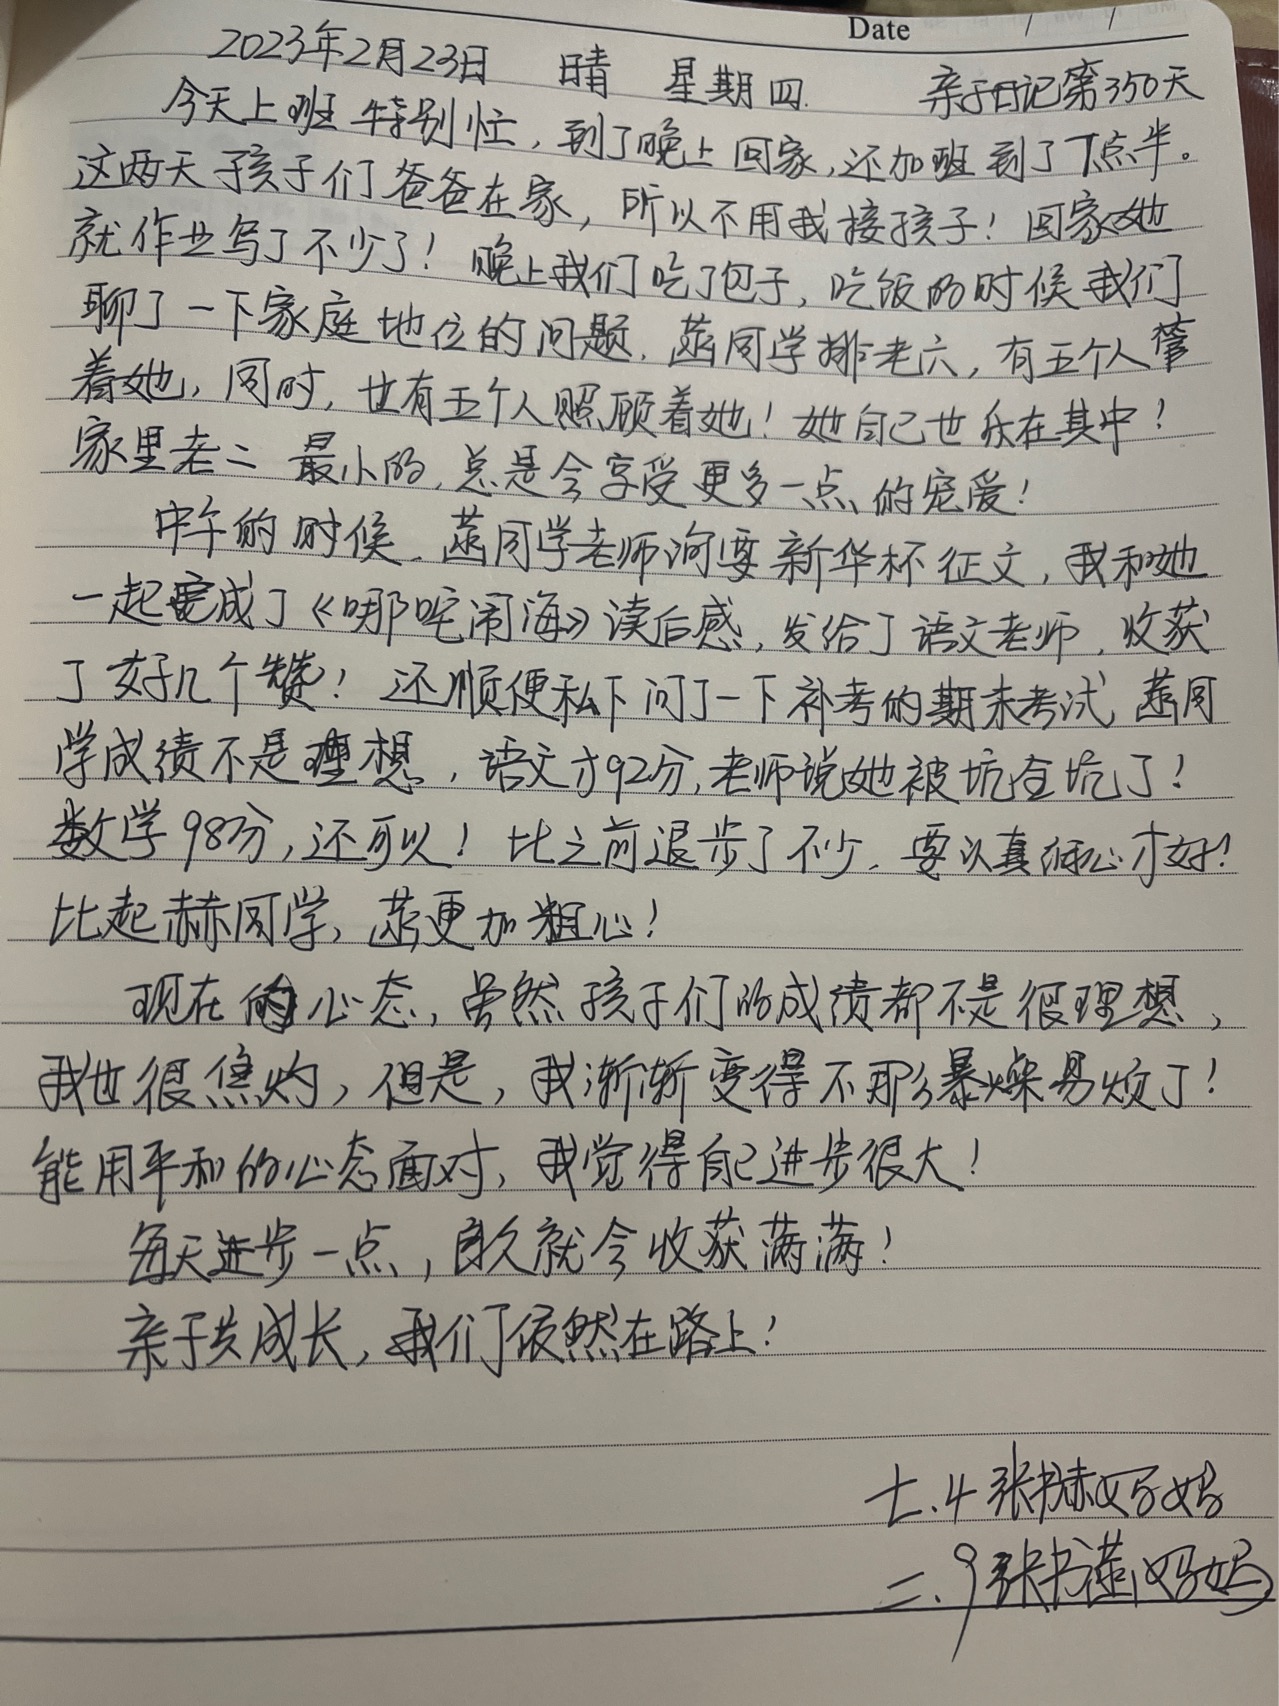 Date / /
2023年2月23日 晴 星期四. 亲子日记第350天
今天上班特别忙，到了晚上回家，还加班到了7点半。
这两天孩子们爸爸在家，所以不用我接孩子！回家她
就作业写了不少了！晚上我们吃了包子，吃饭的时候我们
聊了一下家庭地位的问题，菡同学排老六，有五个人管
着她，同时，也有五个人照顾着她！她自己也乐在其中！
家里老二 最小的，总是会享受更多一点的宠爱！
中午的时候，菡同学老师询要新华杯征文，我和她
一起完成了《哪吒闹海》读后感，发给了语文老师，收获
了好几个赞！还顺便私下问了一下补考的期末考试，菡同
学成绩不是理想，语文才92分，老师说她被坑全坑了！
数学98分，还可以！比之前退步了不少，要认真细心才好！
比起赫同学，菡更加粗心！
现在的心态，虽然孩子们的成绩都不是很理想，
我也很焦灼，但是，我渐渐变得不那么暴燥易烦了！
能用平和的心态面对，我觉得自己进步很大！
每天进步一点，日久就会收获满满！
亲子共成长，我们依然在路上！
七.4张书赫妈妈
二.9张书菡妈妈